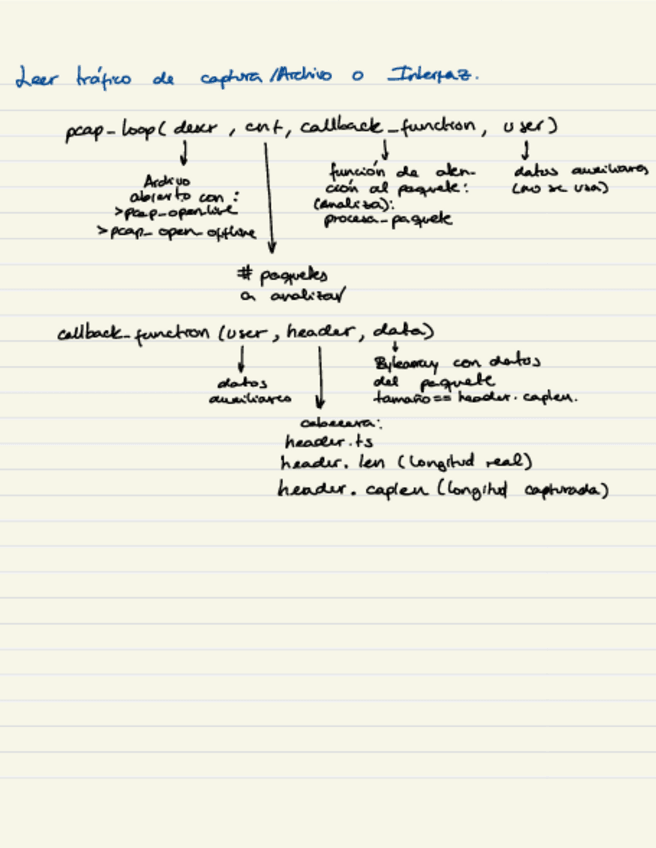 Leer tráfico de captura/Archivo o Interfaz.
pcap_loop( descr, cnt, callback_function, user)
Archivo
abierto con:
>pcap_open_live
>pcap_open_offline
función de aten-
ción al paquete:
(analiza):
procesa_paquete
datos auxiliares
(no se usa)
# paquetes
a analizar
callback_function (user, header, data)
datos
auxiliares
Bytearray con datos
del paquete
tamaño == header.caplen.
cabecera:
header.ts
header.len (longitud real)
header.caplen (longitud capturada)